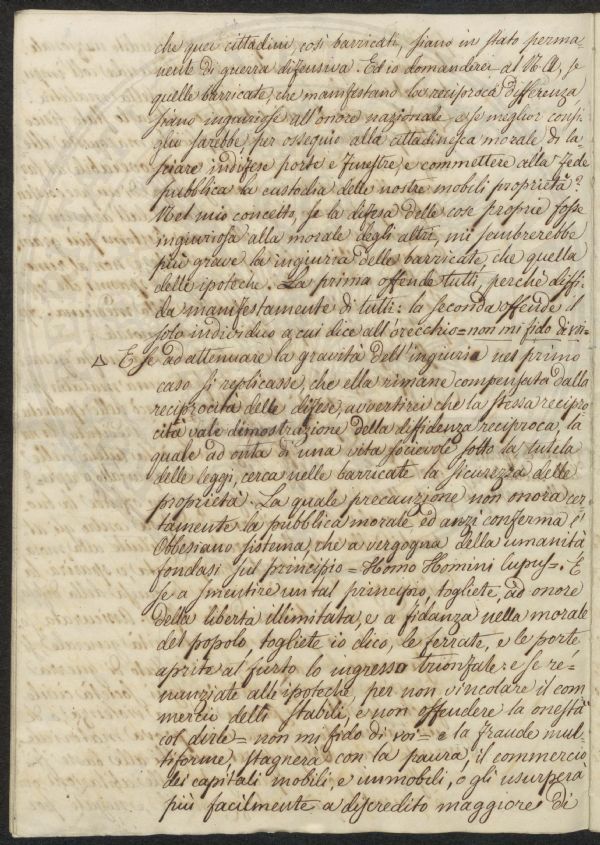 che quei cittadini, così barricati, siano in stato perma-
nente di guerra difensiva. Ed io domanderei al N. A., se
quelle barricate, che manifestano la reciproca differenza
siano ingiuriose all'onore nazionale, e se meglior consi-
glio sarebbe, per ossequio alla cittadinesca morale di la-
sciare indifese porte e finestre, e commettere alla fede
pubblica la custodia delle nostre mobili proprietà?
Nel mio concetto, se la difesa delle cose proprie fosse
ingiuriosa alla morale degli altri, mi sembrerebbe
più grave la ingiuria delle barricate, che quella
delle ipoteche. La prima offende tutti, perchè diffi-
da manifestamente di tutti: la seconda offende il
solo individuo a cui dice all'orecchio = non mi fido di voi =
∆ E se ad attenuare la gravità dell'ingiuria nel primo
caso si replicasse, che ella rimane compensata dalla
reciprocità delle difese, avvertirei che la stessa recipro
cità vale dimostrazione della diffidenza reciproca, la
quale ad onta di una vita socievole sotto la tutela
delle leggi, cerca nelle barricate la sicurezza delle
proprietà. La quale precauzione non onora cer-
tamente la pubblica morale, ed anzi conferma l'
Obbesiano sistema, che a vergogna della umanità
fondasi sul principio = Homo Homini lupus =. E
se a smentire un tal principio, togliete, ad onore
della libertà illimitata, e a fidanza nella morale
del popolo, togliete io dico, le ferrate, e le porte
aprite al furto lo ingresso trionfale: e se re-
nunziate alle ipoteche, per non vincolare il com
mercio delli stabili, e non offendere la onestà
col dirle = non mi fido di voi = e la fraude mul
tiforme, stagnerà con la paura, il commercio
dei capitali mobili, e immobili, o gli usurperà
più facilmente a discredito maggiore di